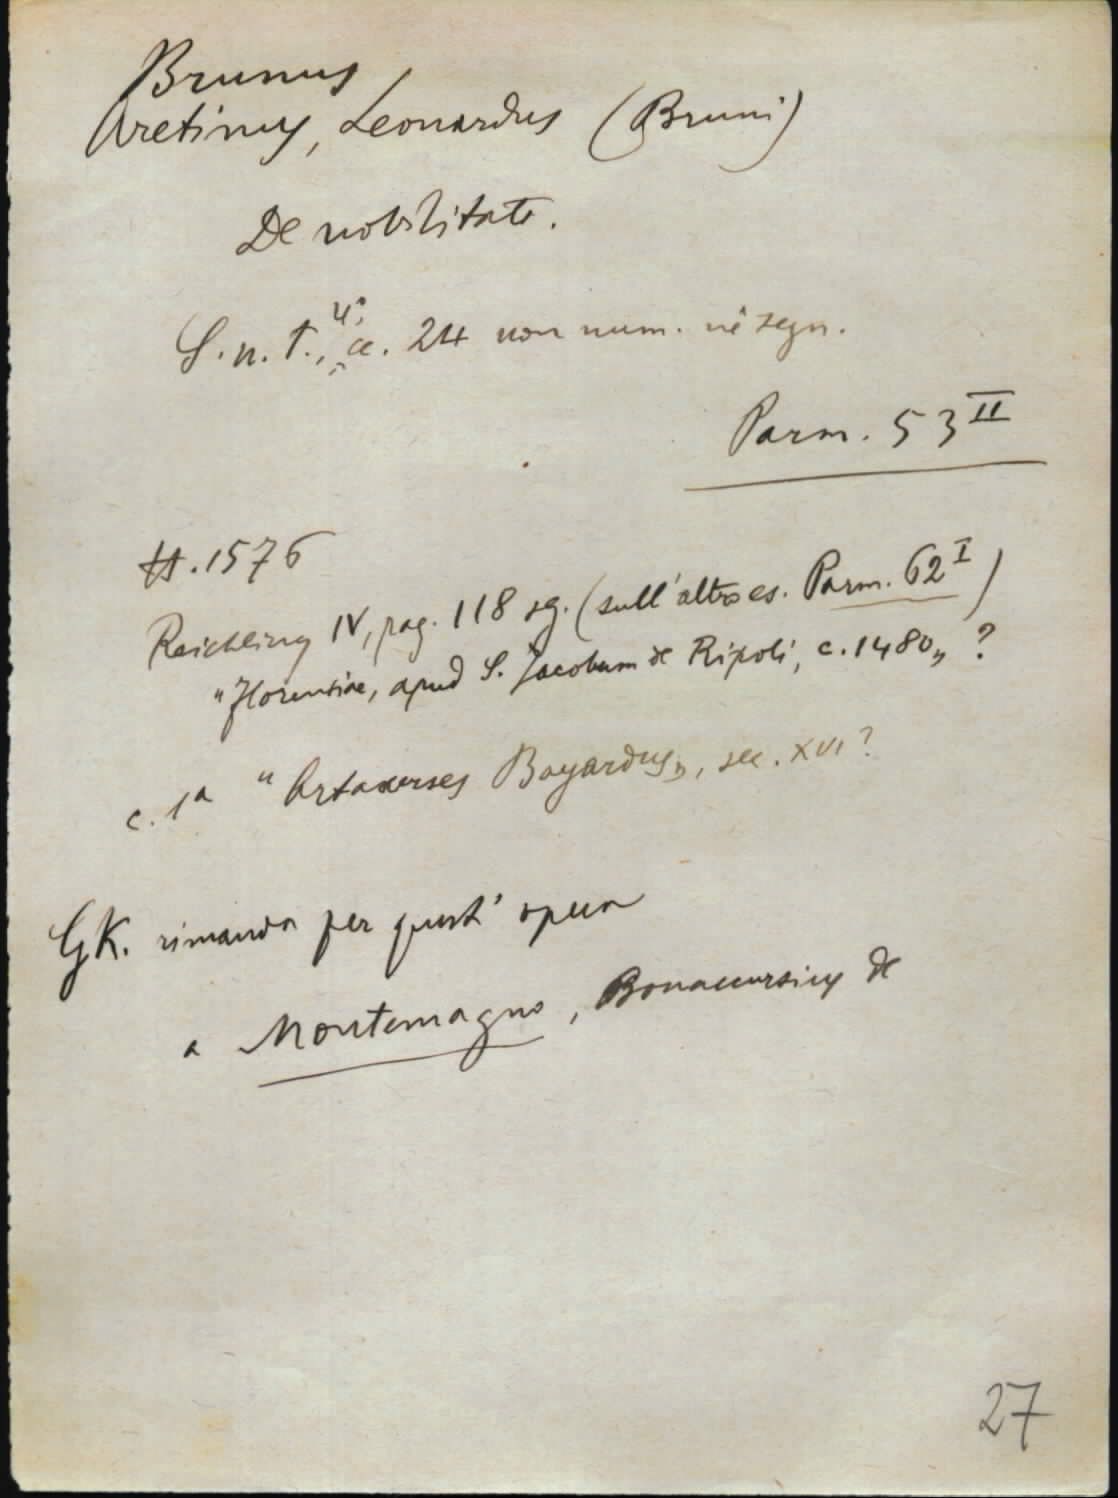 Brunus
Aretinus, Leonardus (Bruni)
De nobilitate.
S. n. t., 4°, cc. 24 non num. nè segn.
Parm. 53 II
H. 1576
Reichling IV, pag. 118 sg. (sull'altro es. Parm. 62 I)
"Florentiae, apud S. Jacobum de Ripoli, c. 1480„ ?
c. 1a "Artaxerses Boyardus„, sec. XVI?
GK. rimanda per quest'opera
a Montemagno, Bonaccursius de
27